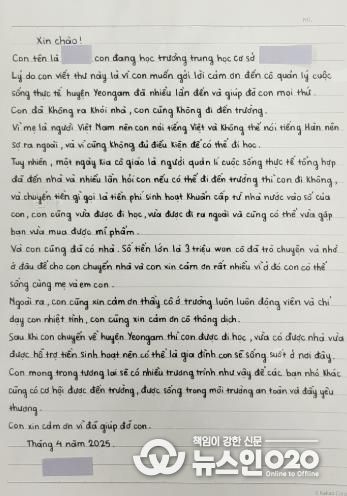 NO.
Xin chào!
Con tên là con đang học trường trung học cơ sở
Lý do con viết thư này là vì con muốn gởi lời cảm ơn đến cô quản lý cuộc
sống thực tế huyện Yeongam đã nhiều lần đến và giúp đỡ con mọi thứ.
Con đã không ra khỏi nhà, con cũng không đi đến trường.
Vì mẹ là người Việt Nam nên con nói tiếng Việt và không thể nói tiếng Hàn nên
sợ ra ngoài, và vì cũng không đủ điều kiện để có thể đi học.
Tuy nhiên, một ngày kia cô giáo là người quản lí cuộc sống thực tế tổng hợp
đã đến nhà và nhiều lần hỏi con nếu có thể đi đến trường thì con đi không,
và chuyển tiền gì gọi là tiền phí sinh hoạt khuẩn cấp từ nhà nước vào sổ của
con, con cũng vừa được đi học, vừa được đi ra ngoài và cũng có thể vừa gặp
bạn vừa mua được mĩ phẩm.
Và con cũng đã có nhà. Số tiền lớn là 3 triệu won cô đã trò chuyện và nhờ
ở đâu để cho con chuyển nhà và con xin cảm ơn rất nhiều vì ở đó con có thể
sống cùng mẹ và em con.
Ngoài ra, con cũng xin cảm ơn thầy cô ở trường luôn luôn động viên và chỉ
dạy con nhiệt tình, con cũng xin cảm ơn cô thông dịch.
Sau khi con chuyển về huyện Yeongam thì con được đi học, vừa có được nhà vừa
được hỗ trợ tiền sinh hoạt nên có thể là gia đình con sẽ sống suốt ở nơi đây.
Con mong trong tương lai sẽ có nhiều trương trình như vậy để các bạn nhỏ khác
cũng có cơ hội được đến trường, được sống trong môi trường an toàn và đầy yêu
thương.
Con xin cảm ơn vì đã giúp đỡ con.
Tháng 4 năm 2025.
책임이 강한 신문
뉴스인020
Online to Offline